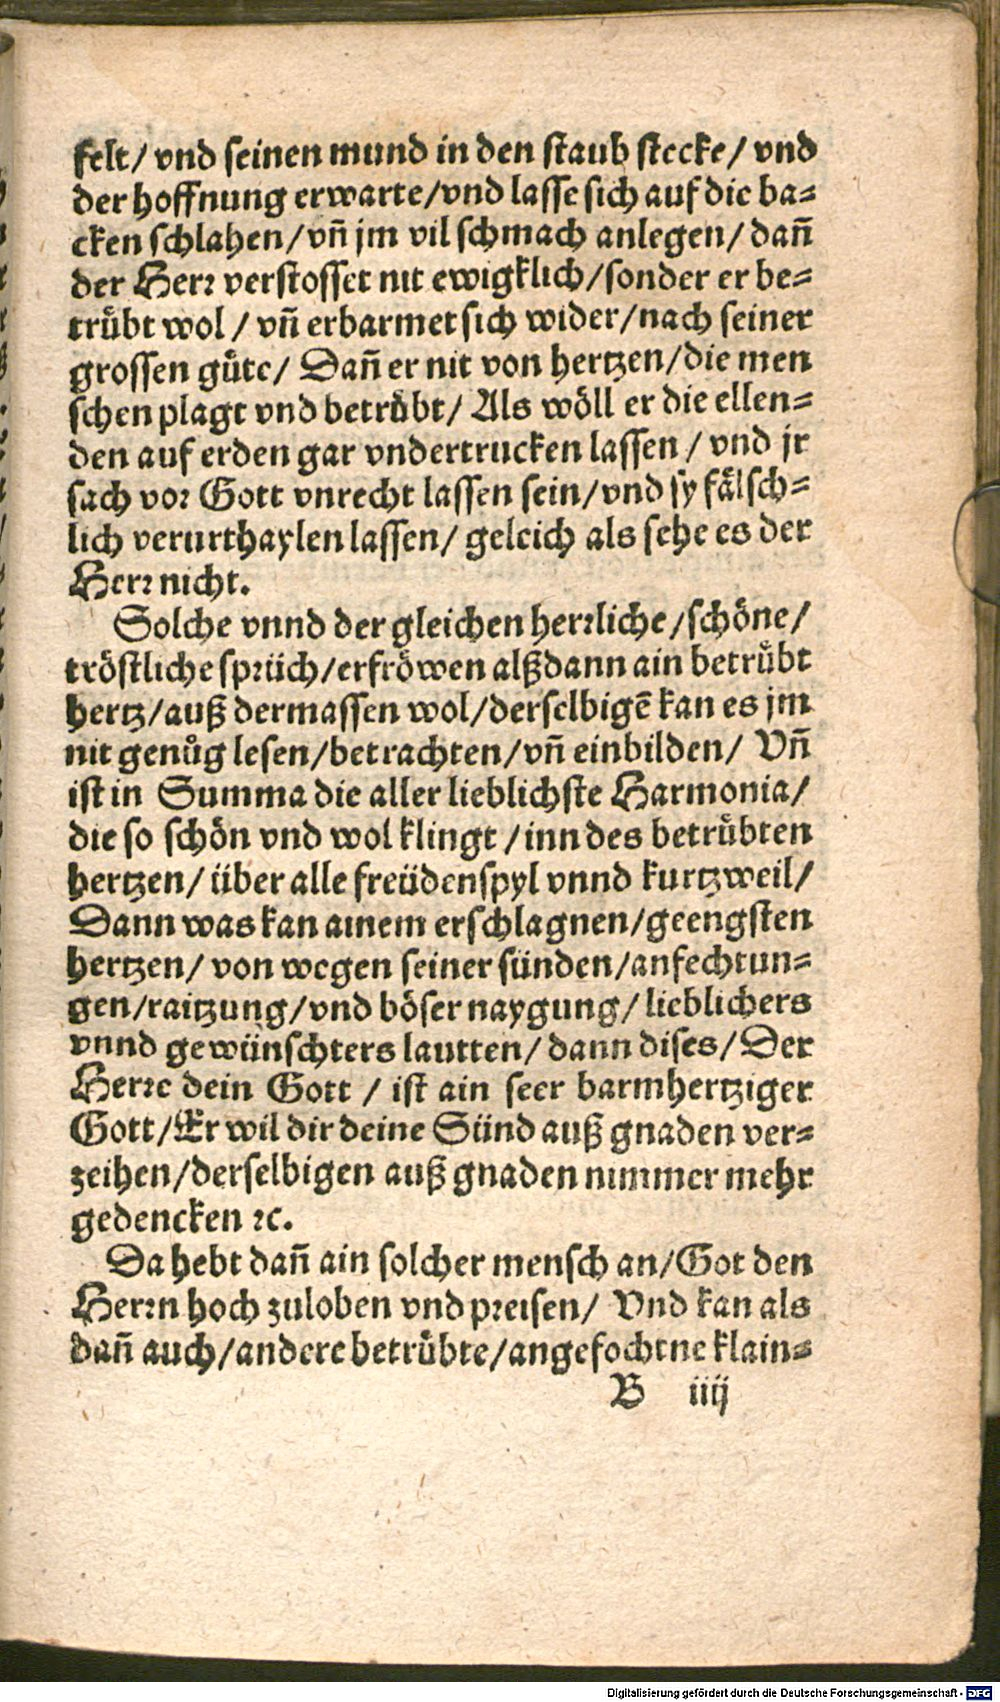 felt/ vnd seinen mund in den staub stecke/ vnd
der hoffnung erwarte/vnd lasse sich auf die ba-
cken schlahen/vñ jm vil schmach anlegen/ dañ
der Herr verstosset nit ewigklich/sonder er be-
trůbt wol / vñ erbarmet sich wider/nach seiner
grossen gůte/ Dañ er nit von hertzen/die men
schen plagt vnd betrůbt/ Als wöll er die ellen-
den auf erden gar vndertrucken lassen / vnd jr
sach vor Gott vnrecht lassen sein/vnd sy fälsch-
lich verurthaylen lassen/ geleich als sehe es der
Herr nicht.
Solche vnnd der gleichen herrliche/schöne/
tröstliche sprüch/erfröwen alßdann ain betrůbt
hertz/auß dermassen wol/derselbigē kan es jm
nit genůg lesen/betrachten/vñ einbilden/ Vñ
ist in Summa die aller lieblichste Harmonia/
die so schön vnd wol klingt /inn des betrůbten
hertzen/ über alle freüdenspyl vnnd kurtzweil/
Dann was kan ainem erschlagnen/geengsten
hertzen/ von wegen seiner sünden/anfechtun-
gen/raitzung/vnd böser naygung/ lieblichers
vnnd gewünschters lautten/ dann dises/ Der
Herre dein Gott / ist ain seer barmhertziger
Gott/Er wil dir deine Sünd auß gnaden ver-
zeihen/derselbigen auß gnaden nimmer mehr
gedencken ꝛc.
Da hebt dañ ain solcher mensch an/Got den
Herrn hoch zuloben vnd preisen/ Vnd kan als
dañ auch/andere betrůbte/angefochtne klain-
B iiij
Digitalisierung gefördert durch die Deutsche Forschungsgemeinschaft - DFG